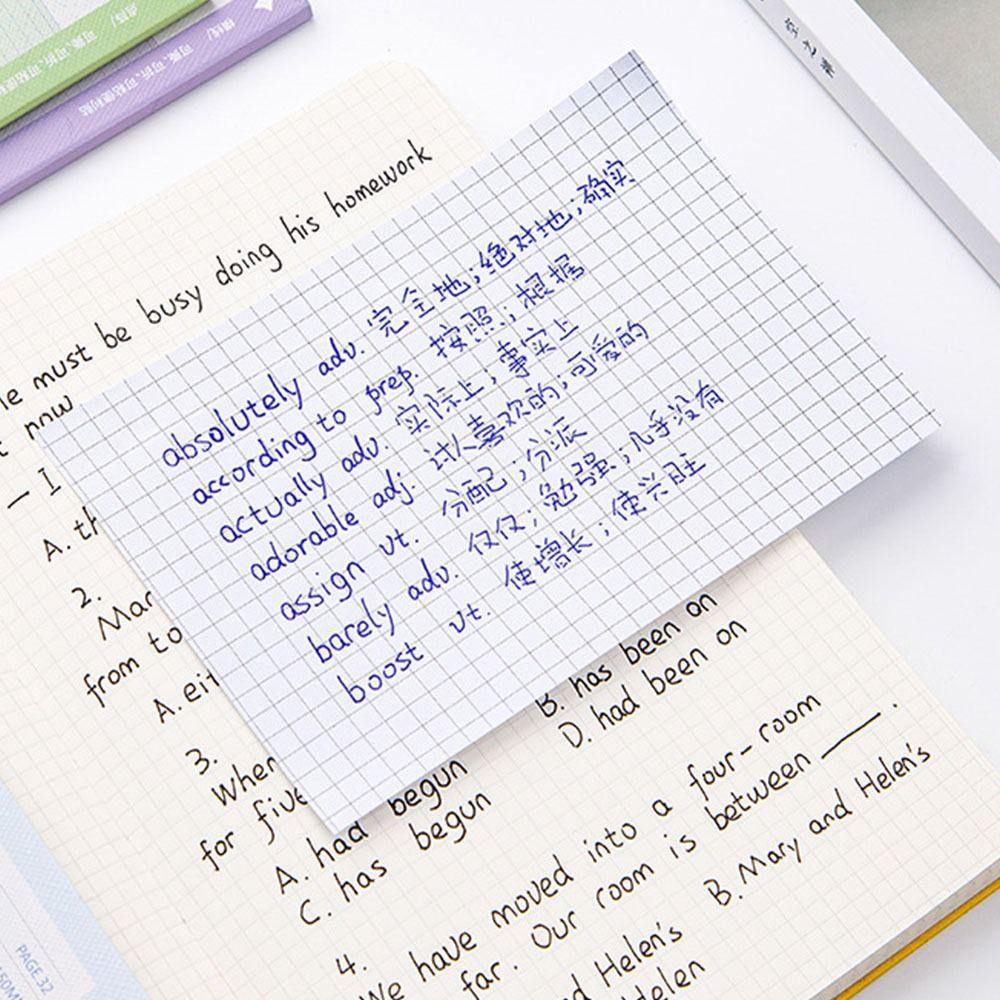 点阵/可撕.可折.可粘便利贴
横线/可撕.可折.可粘便利贴
空之雅
must be busy doing his homework
now
— I
A. th
2.
Mar
from to
A. eit
3.
When
for five
A. had begun
C. has begun
B. has been on
D. had been on
4.
We have moved into a four-room
far. Our room is between ____.
B. Mary and Helen's
d Helen's
Helen
absolutely adv. 完全地;绝对地;确实
according to prep. 按照;根据
actually adv. 实际上;事实上
adorable adj. 讨人喜欢的;可爱的
assign vt. 分配;分派
barely adv. 仅仅;勉强;几乎没有
boost vt. 使增长;使兴旺
PAGE.32